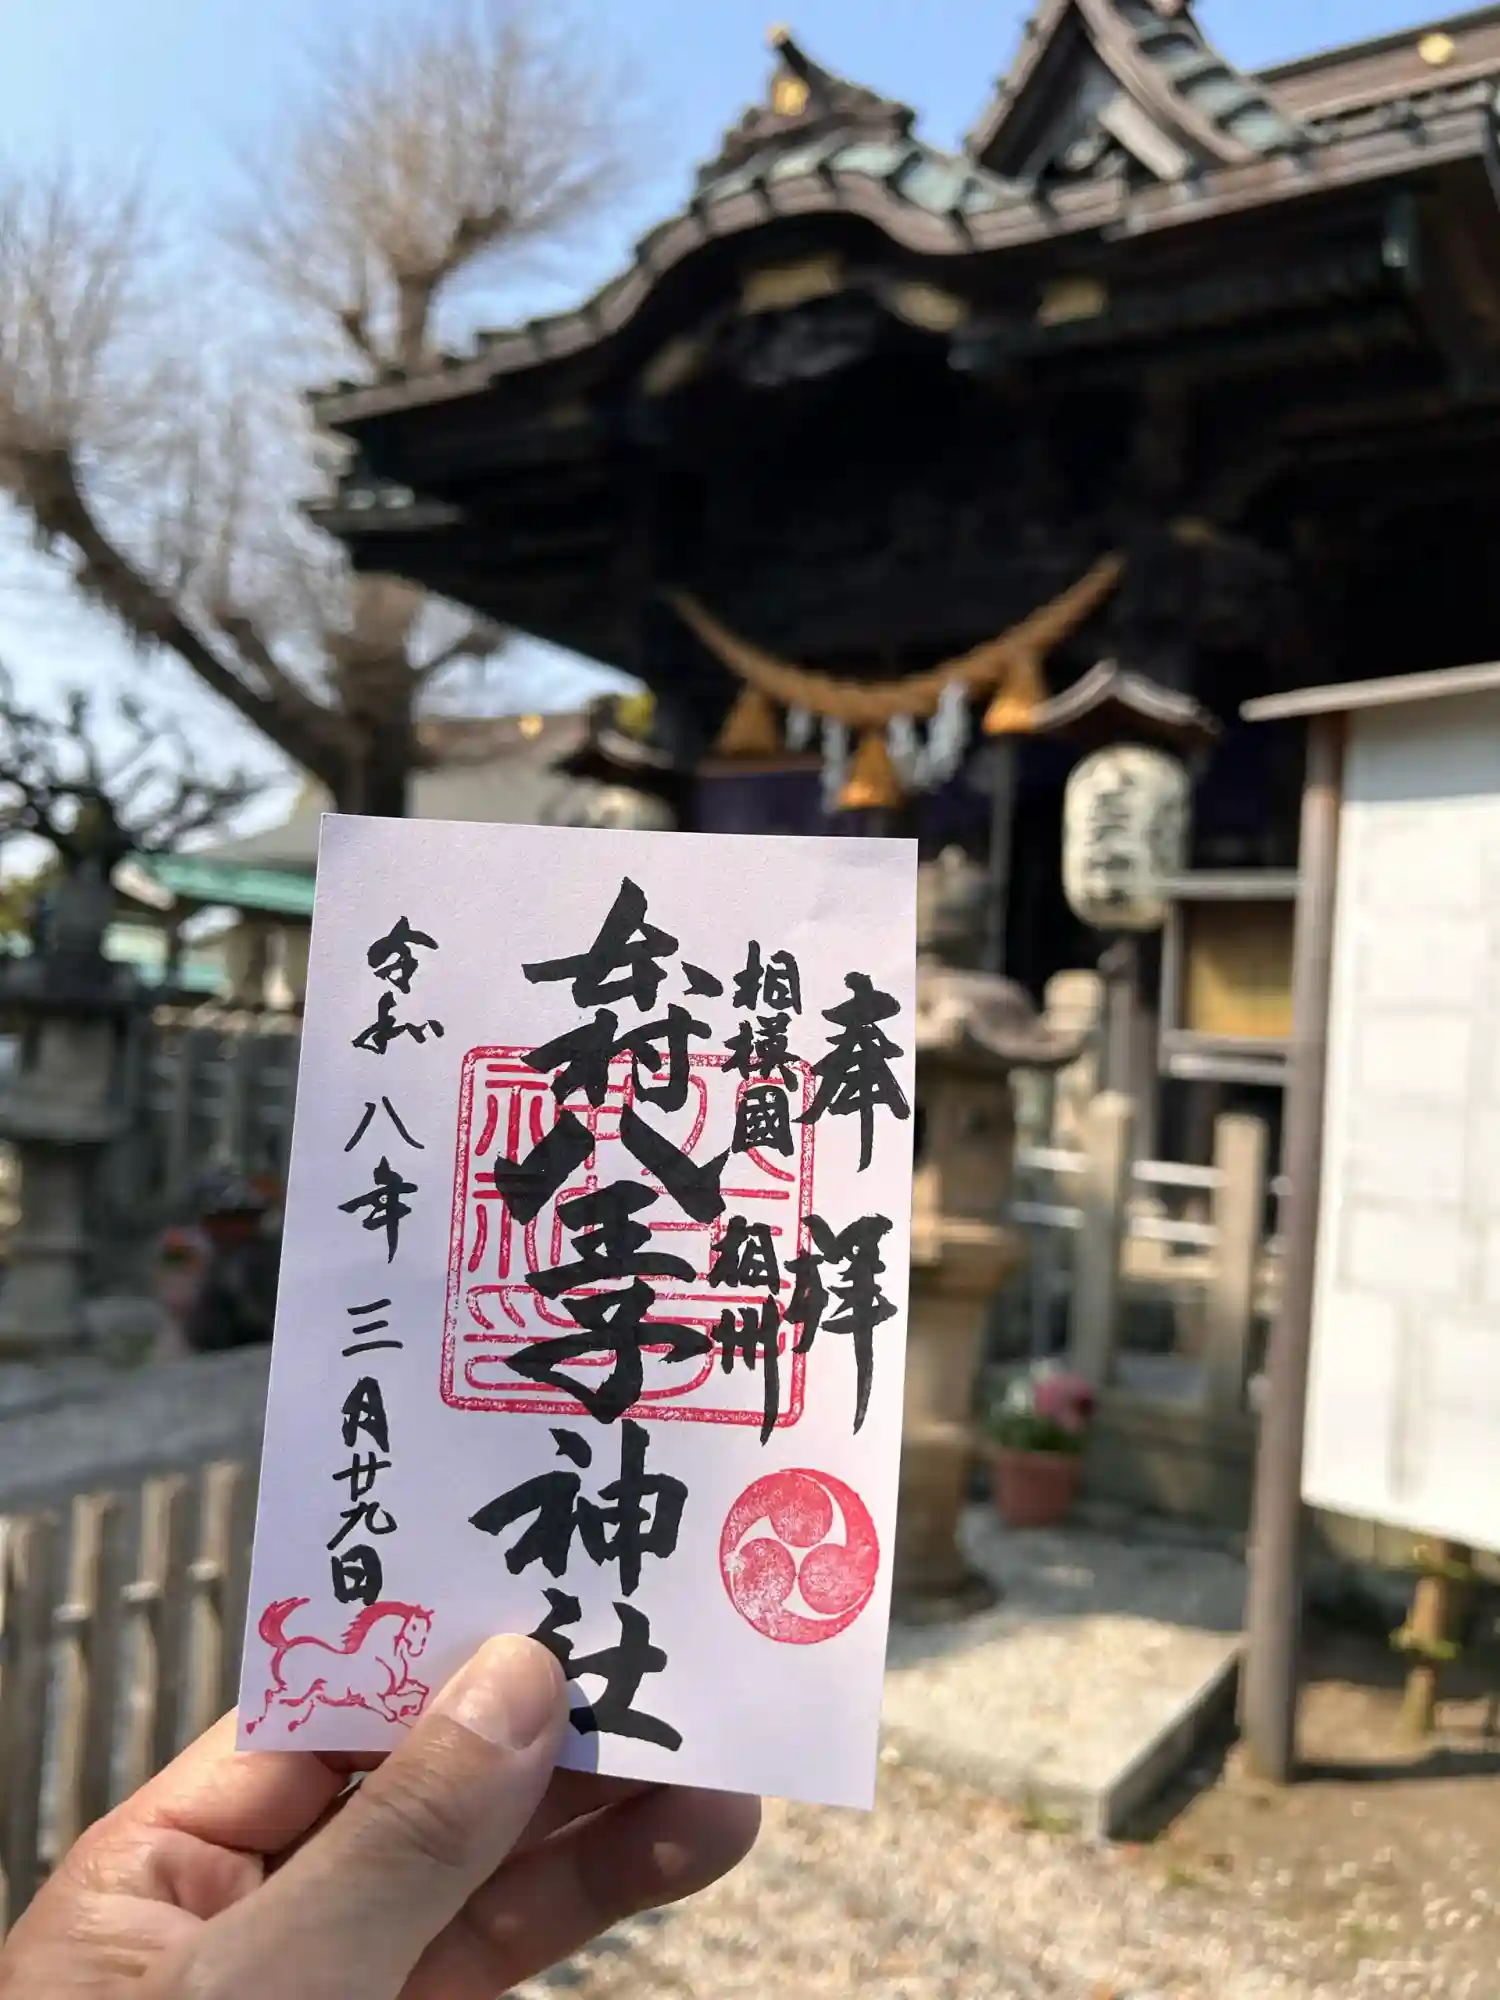 奉拝
相模國 相州
本村八王子神社
令和八年三月廿九日